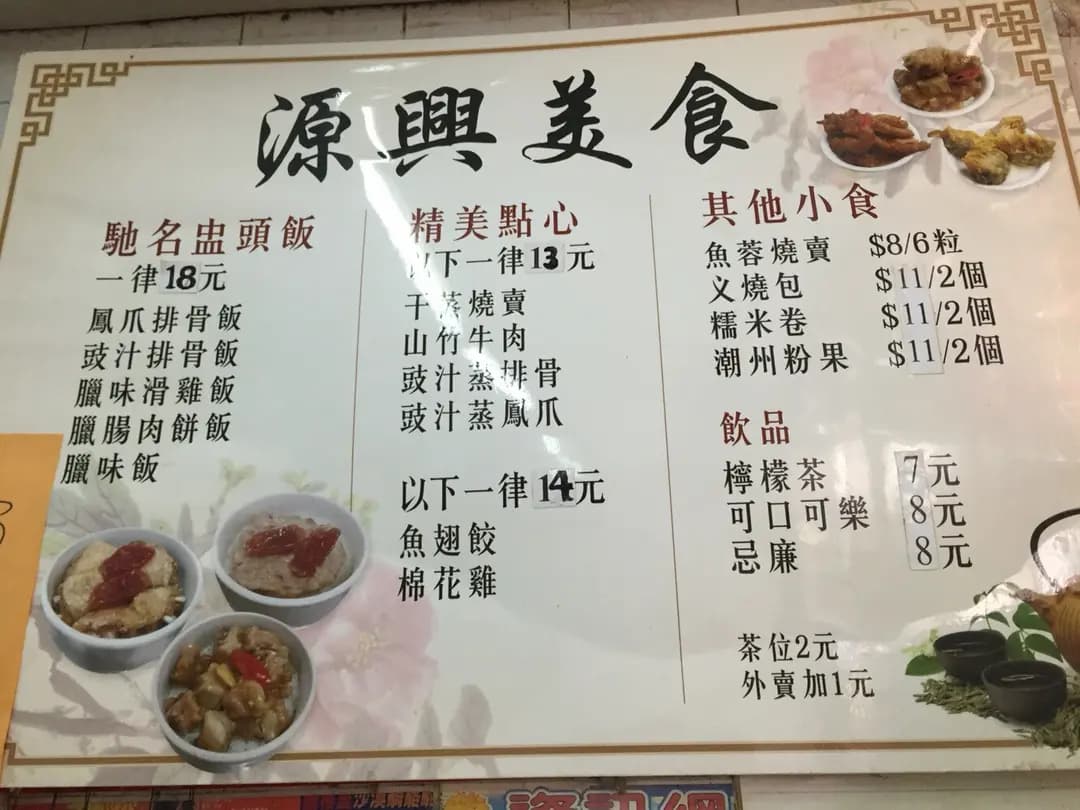 源興美食
馳名盅頭飯
一律18元
鳳爪排骨飯
豉汁排骨飯
臘味滑雞飯
臘腸肉餅飯
臘味飯
精美點心
以下一律13元
干蒸燒賣
山竹牛肉
豉汁蒸排骨
豉汁蒸鳳爪
以下一律14元
魚翅餃
棉花雞
其他小食
魚蓉燒賣 $8/6粒
义燒包 $11/2個
糯米卷 $11/2個
潮州粉果 $11/2個
飲品
檸檬茶 7元
可口可樂 8元
忌廉 8元
茶位2元
外賣加1元